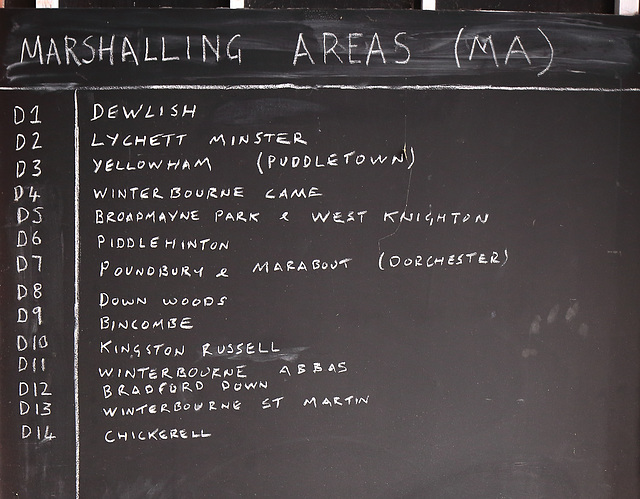 MARSHALLING AREAS (MA)
D1 DEWLISH
D2 LYCHETT MINSTER
D3 YELLOWHAM (PUDDLETOWN)
D4 WINTERBOURNE CAME
D5 BROADMAYNE PARK & WEST KNIGHTON
D6 PIDDLEHINTON
D7 POUNDBURY & MARABOUT (DORCHESTER)
D8 DOWN WOODS
D9 BINCOMBE
D10 KINGSTON RUSSELL
D11 WINTERBOURNE ABBAS
D12 BRADFORD DOWN
D13 WINTERBOURNE ST MARTIN
D14 CHICKERELL